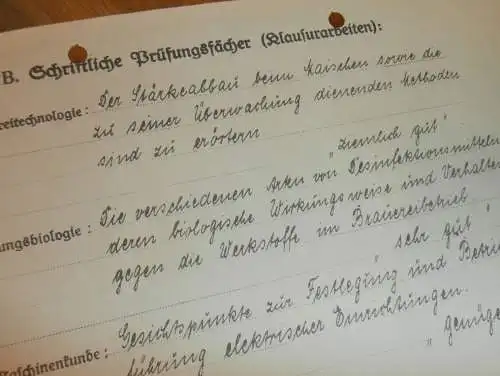 B. Schriftliche Prüfungsfächer (Klausurarbeiten):
reitechnologie: Der Stärkeabbau beim Maischen sowie die
zu seiner Überwachung dienenden Methoden
sind zu erörtern
"ziemlich gut"
ungsbiologie: Die verschiedenen Arten von Desinfektionsmitteln
deren biologische Wirkungsweise und Verhalten
gegen die Werkstoffe im Brauereibetrieb
"sehr gut"
Maschinenkunde: Gesichtspunkte zur Festlegung und Betrieb
führung elektrischer Einrichtungen.
"genüge